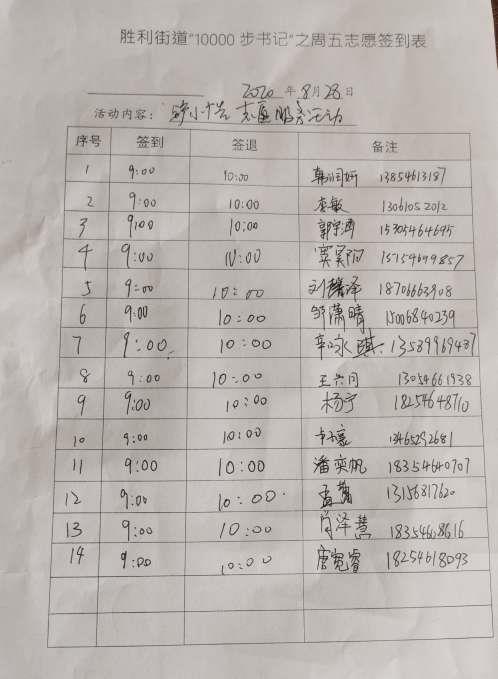 胜利街道“10000 步书记”之周五志愿签到表
2020 年 8 月 28 日
活动内容: 志愿服务活动
序号 签到 签退 备注
1 9:00 10:00 13854613187
2 9:00 10:00 李敏 13061052012
3 9:00 10:00 15305464695
4 9:00 10:00 15154699857
5 9:00 10:00 18706663908
6 9:00 10:00 邹潇晴 15006840239
7 9:00 10:00 13589969487
8 9:00 10:00 13054661938
9 9:00 10:00 杨宁 18254648710
10 9:00 10:00 13465292681
11 9:00 10:00 潘奕帆 18354640707
12 9:00 10:00 13156817620
13 9:00 10:00 肖泽慧 18354608616
14 9:00 10:00 唐宽睿 18254618093